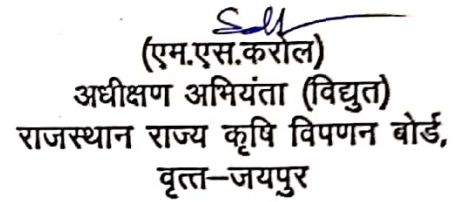 (एम.एस.करोल)
अधीक्षण अभियंता (विद्युत)
राजस्थान राज्य कृषि विपणन बोर्ड,
वृत्त–जयपुर